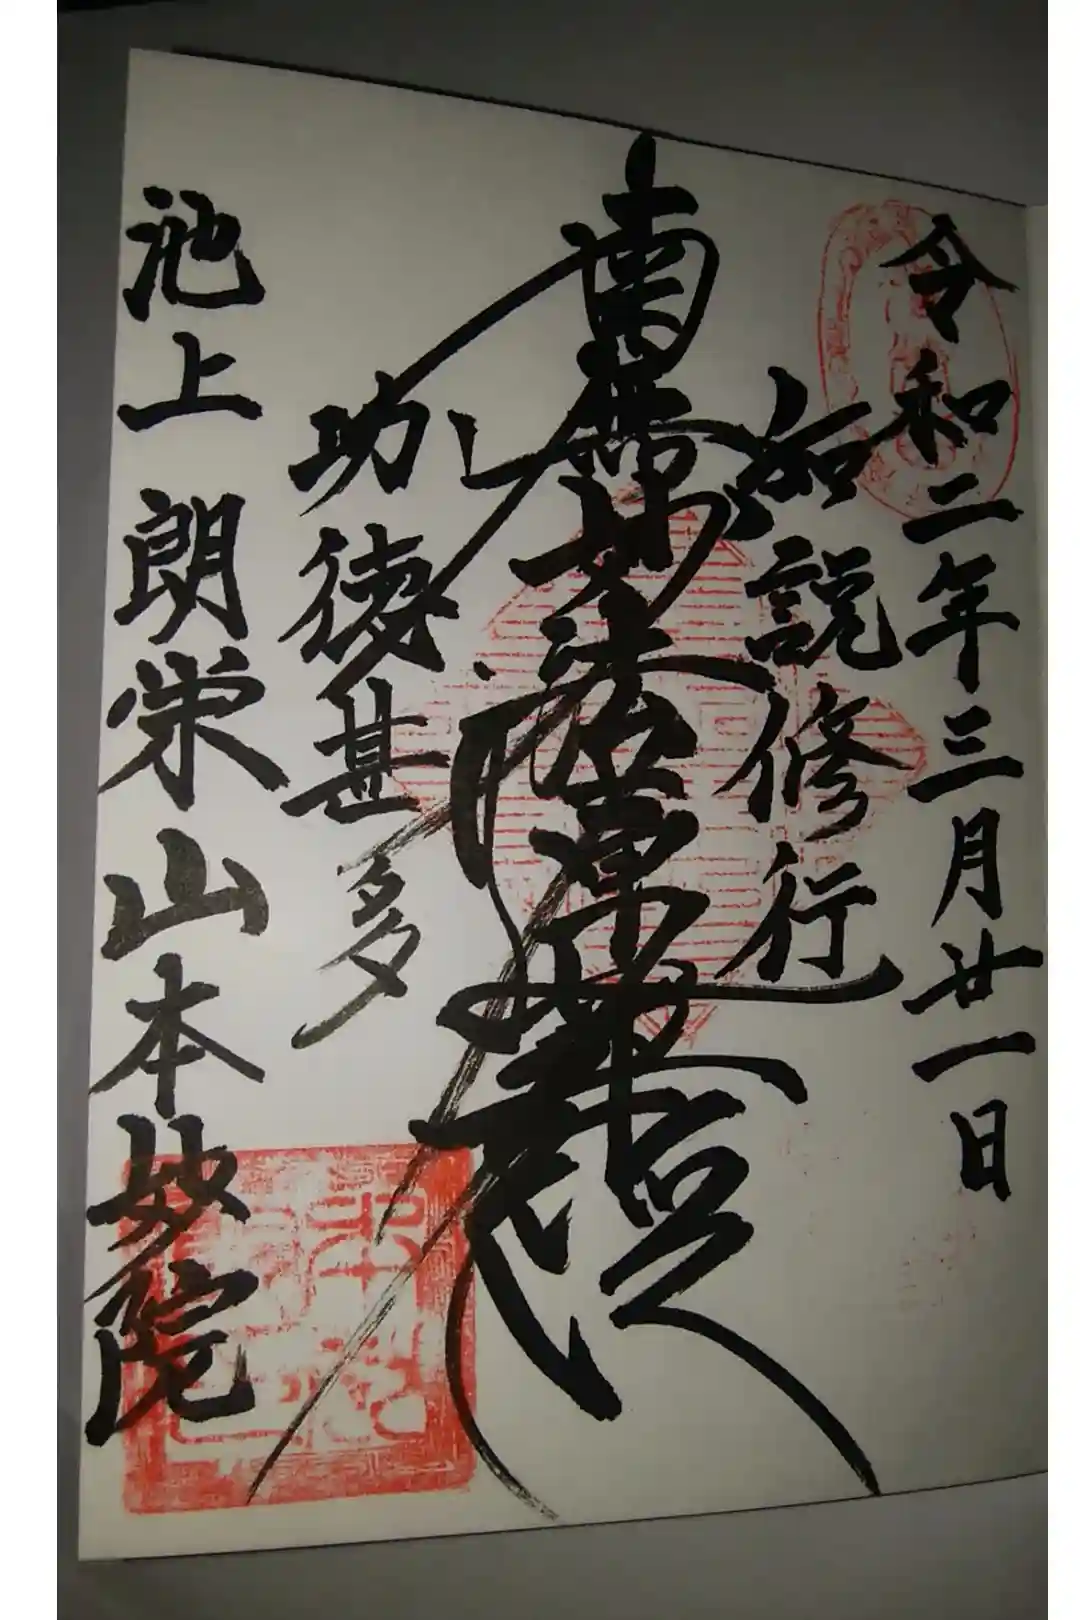 令和二年三月廿一日
如説修行
南無妙法蓮華経
功徳甚多
池上 朗栄山本妙院